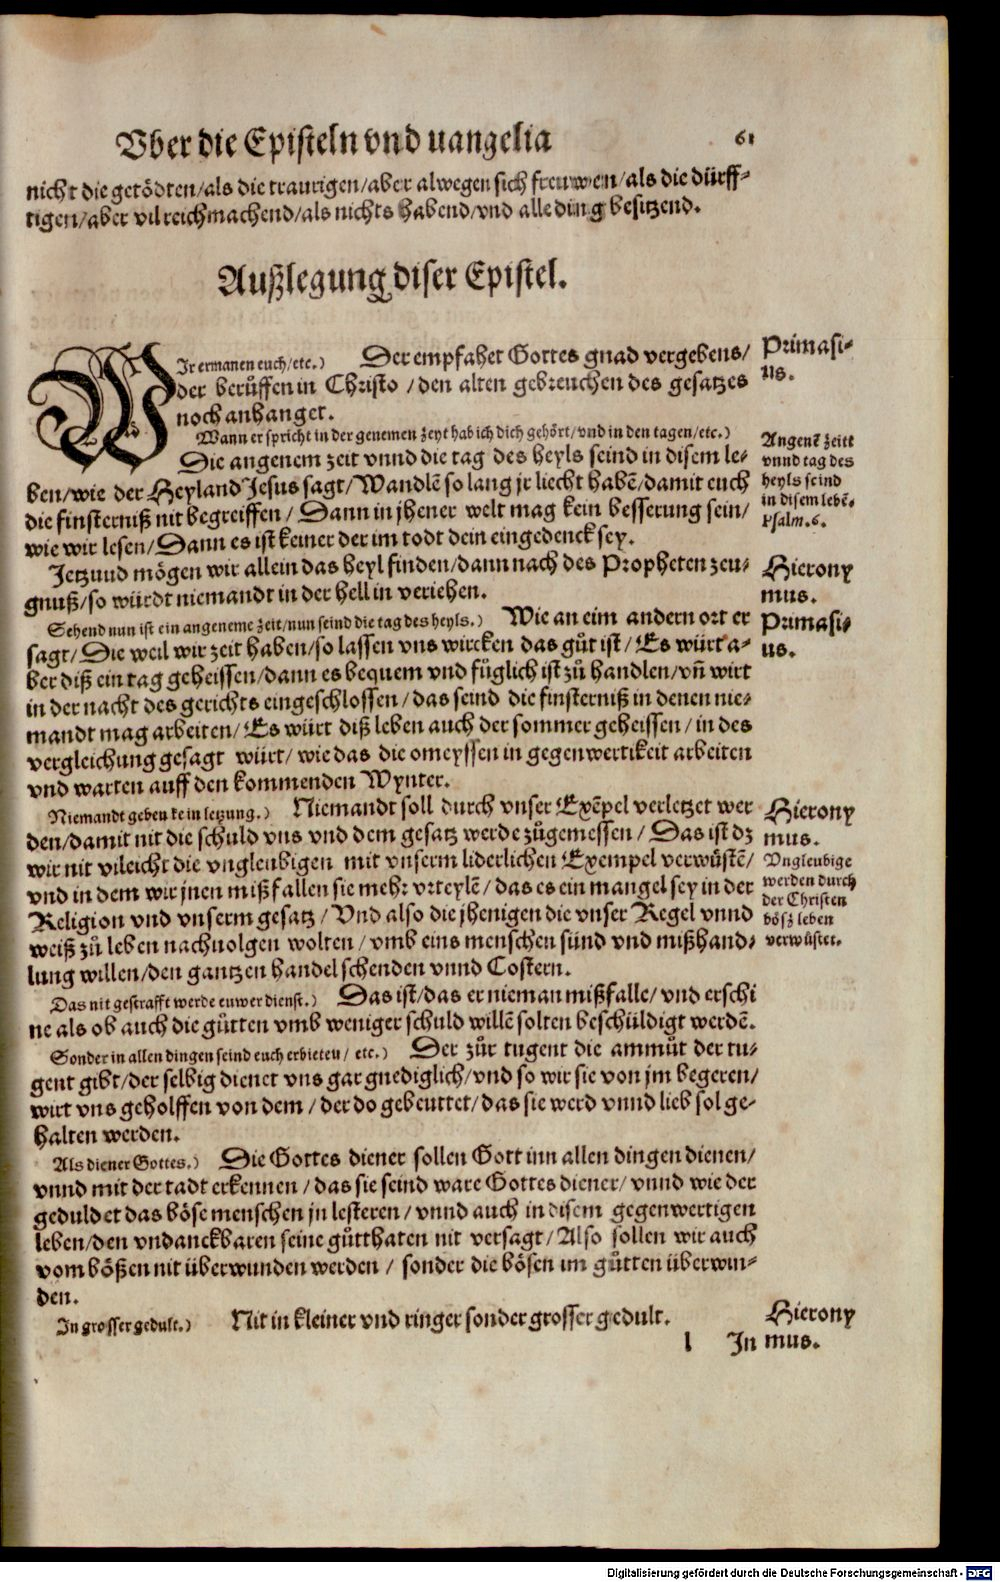 Vber die Episteln vnd uangelia 61
nicht die getödten/als die traurigen/aber alwegen sich freuwen/als die dürff-
tigen/aber vil reichmachend/als nichts habend/vnd alle ding besitzend.
Außlegung diser Epistel.
WIr ermanen euch/etc.) Der empfahet Gottes gnad vergebens/
der berůffen in Christo /den alten gebreuchen des gesatzes
noch anhanget.
Primasi-
us.
Wann er spricht in der genemen zeyt hab ich dich gehört/vnd in den tagen/etc.)
Die angenem zeit vnnd die tag des heyls seind in disem le-
ben/wie der Heyland Jesus sagt/Wandlē so lang jr liecht habē/damit euch
die finsterniß nit begreiffen/ Dann in jhener welt mag kein besserung sein/
wie wir lesen/Dann es ist keiner der im todt dein eingedenck sey.
Angenē zeitt
vnnd tag des
heyls seind
in disem lebē.
Psalm.6.
Jetzund mögen wir allein das heyl finden/dann nach des Propheten zeu-
gnuß/so würdt niemandt in der hell in veriehen.
Hierony
mus.
Sehend nun ist ein angeneme zeit/nun seind die tag des heyls.) Wie an eim andern ort er
sagt/Die weil wir zeit haben/so lassen vns wircken das gůt ist/Es würt a-
ber diß ein tag geheissen/dann es bequem vnd füglich ist zů handlen/vn̄ wirt
in der nacht des gerichts eingeschlossen/das seind die finsterniß in denen nie-
mandt mag arbeiten/Es würt diß leben auch der sommer geheissen/in des
vergleichung gesagt würt/wie das die omeyssen in gegenwertikeit arbeiten
vnd warten auff den kommenden Wynter.
Primasi-
us.
Niemandt geben kein letzung.) Niemandt soll durch vnser Exēpel verletzet wer
den/damit nit die schuld vns vnd dem gesatz werde zůgemessen/ Das ist dz
wir nit vileicht die vngleubigen mit vnserm liderlichen Exempel verwüstē/
vnd in dem wir jnen mißfallen sie mehr vrteylē/das es ein mangel sey in der
Religion vnd vnserm gesatz/Vnd also die jhenigen die vnser Regel vnnd
weiß zů leben nachuolgen wolten/vmb eins menschen sünd vnd mißhand-
lung willen/den gantzen handel schenden vnnd Costern.
Hierony
mus.
Vngleubige
werden durch
der Christen
bösz leben
verwüstet.
Das nit gestrafft werde euwer dienst.) Das ist/das er nieman mißfalle/vnd erschi
ne als ob auch die gůtten vmb weniger schuld willē solten beschüldigt werdē.
Sonder in allen dingen seind euch erbieten/ etc.) Der zůr tugent die ammůt der tu-
gent gibt/der selbig dienet vns gar gnediglich/vnd so wir sie von jm begeren/
wirt vns geholffen von dem /der do gebeuttet/das sie werd vnnd lieb sol ge-
halten werden.
Als diener Gottes.) Die Gottes diener sollen Gott inn allen dingen dienen/
vnnd mit der tadt erkennen/das sie seind ware Gottes diener/vnnd wie der
geduldet das böse menschen jn lesteren/vnnd auch in disem gegenwertigen
leben/den vndanckbaren seine gůtthaten nit versagt/Also sollen wir auch
vom bößen nit überwunden werden/ sonder die bösen im gůtten überwin-
den.
In grosser gedult.) Nit in kleiner vnd ringer sonder grosser gedult.
Hierony
mus.
l In
Digitalisierung gefördert durch die Deutsche Forschungsgemeinschaft - DFG